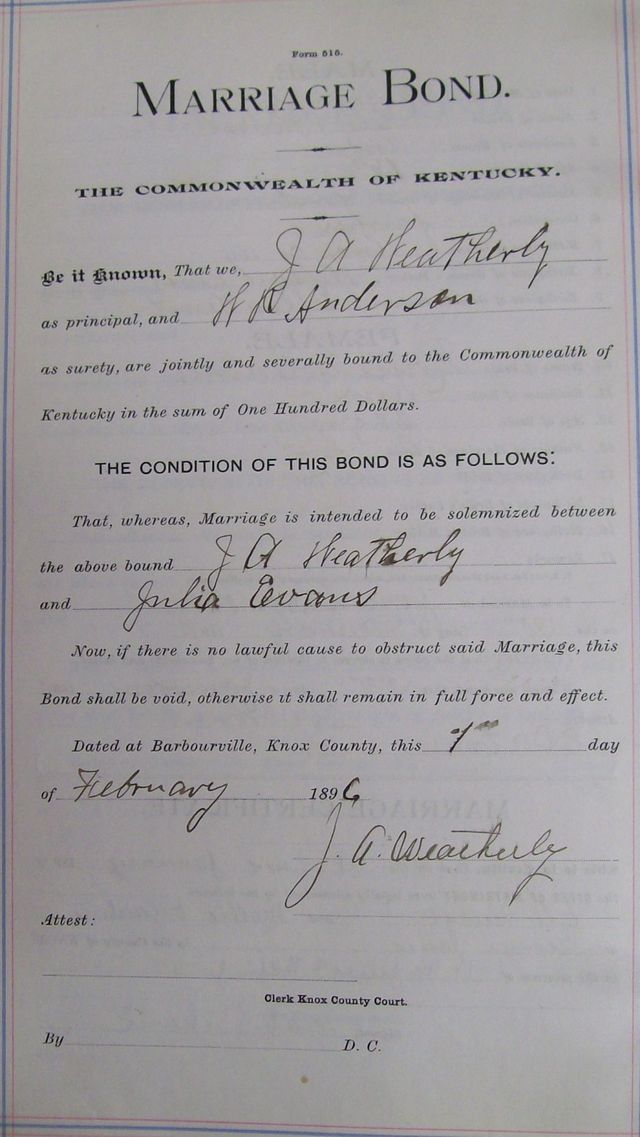 Form 515.
MARRIAGE BOND.
THE COMMONWEALTH OF KENTUCKY.
Be it Known, That we, J A Weatherly
as principal, and W R Anderson
as surety, are jointly and severally bound to the Commonwealth of
Kentucky in the sum of One Hundred Dollars.
THE CONDITION OF THIS BOND IS AS FOLLOWS:
That, whereas, Marriage is intended to be solemnized between
the above bound J A Weatherly
and Julia Evans
Now, if there is no lawful cause to obstruct said Marriage, this
Bond shall be void, otherwise it shall remain in full force and effect.
Dated at Barbourville, Knox County, this 7th day
of February 1896
J. A. Weatherly
Attest:
Clerk Knox County Court.
By D. C.